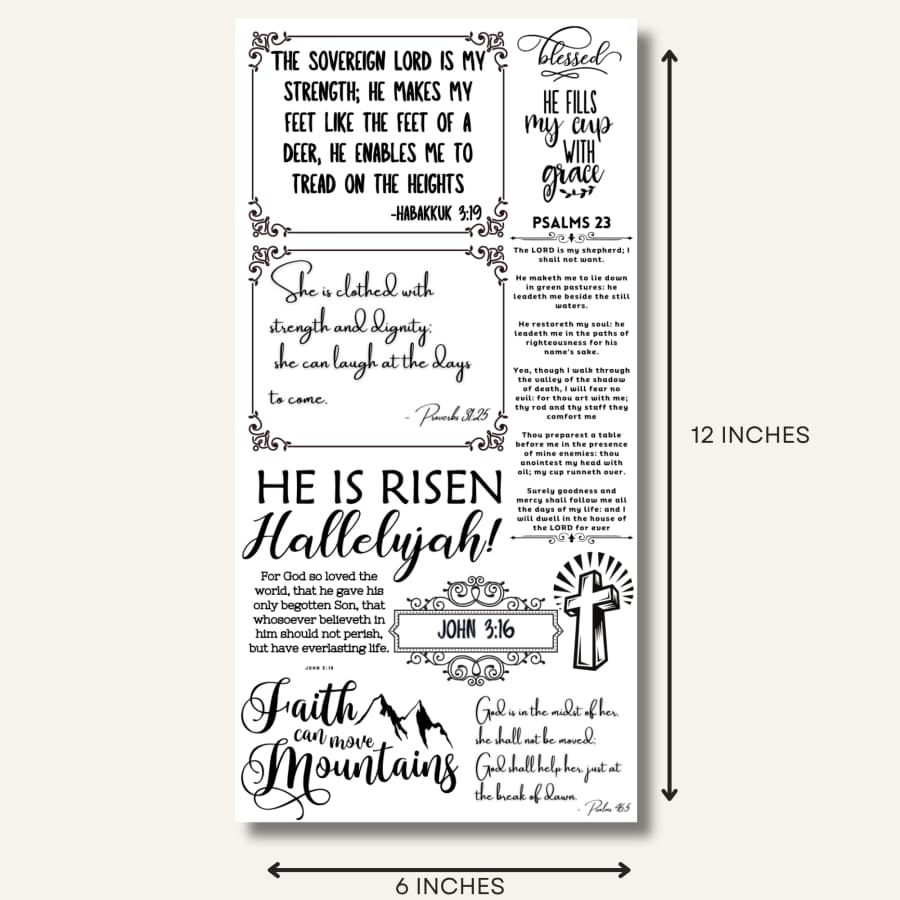 THE SOVEREIGN LORD IS MY
STRENGTH; HE MAKES MY
FEET LIKE THE FEET OF A
DEER, HE ENABLES ME TO
TREAD ON THE HEIGHTS
-HABAKKUK 3:19
She is clothed with
strength and dignity;
she can laugh at the days
to come.
- Proverbs 31:25
HE IS RISEN
Hallelujah!
For God so loved the
world, that he gave his
only begotten Son, that
whosoever believeth in
him should not perish,
but have everlasting life.
JOHN 3:16
JOHN 3:16
Faith
can move
Mountains
blessed
HE FILLS
my cup
WITH
grace
PSALMS 23
The LORD is my shepherd; I
shall not want.
He maketh me to lie down
in green pastures: he
leadeth me beside the still
waters.
He restoreth my soul: he
leadeth me in the paths of
righteousness for his
name's sake.
Yea, though I walk through
the valley of the shadow
of death, I will fear no
evil: for thou art with me;
thy rod and thy staff they
comfort me
Thou preparest a table
before me in the presence
of mine enemies: thou
anointest my head with
oil; my cup runneth over.
Surely goodness and
mercy shall follow me all
the days of my life: and I
will dwell in the house of
the LORD for ever
God is in the midst of her,
she shall not be moved;
God shall help her, just at
the break of dawn.
- Psalms 46:5
12 INCHES
6 INCHES